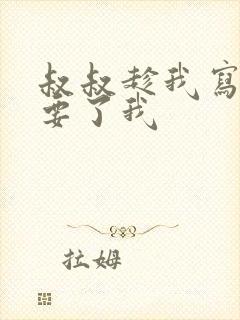 叔叔趁我寫
要了我
拉姆